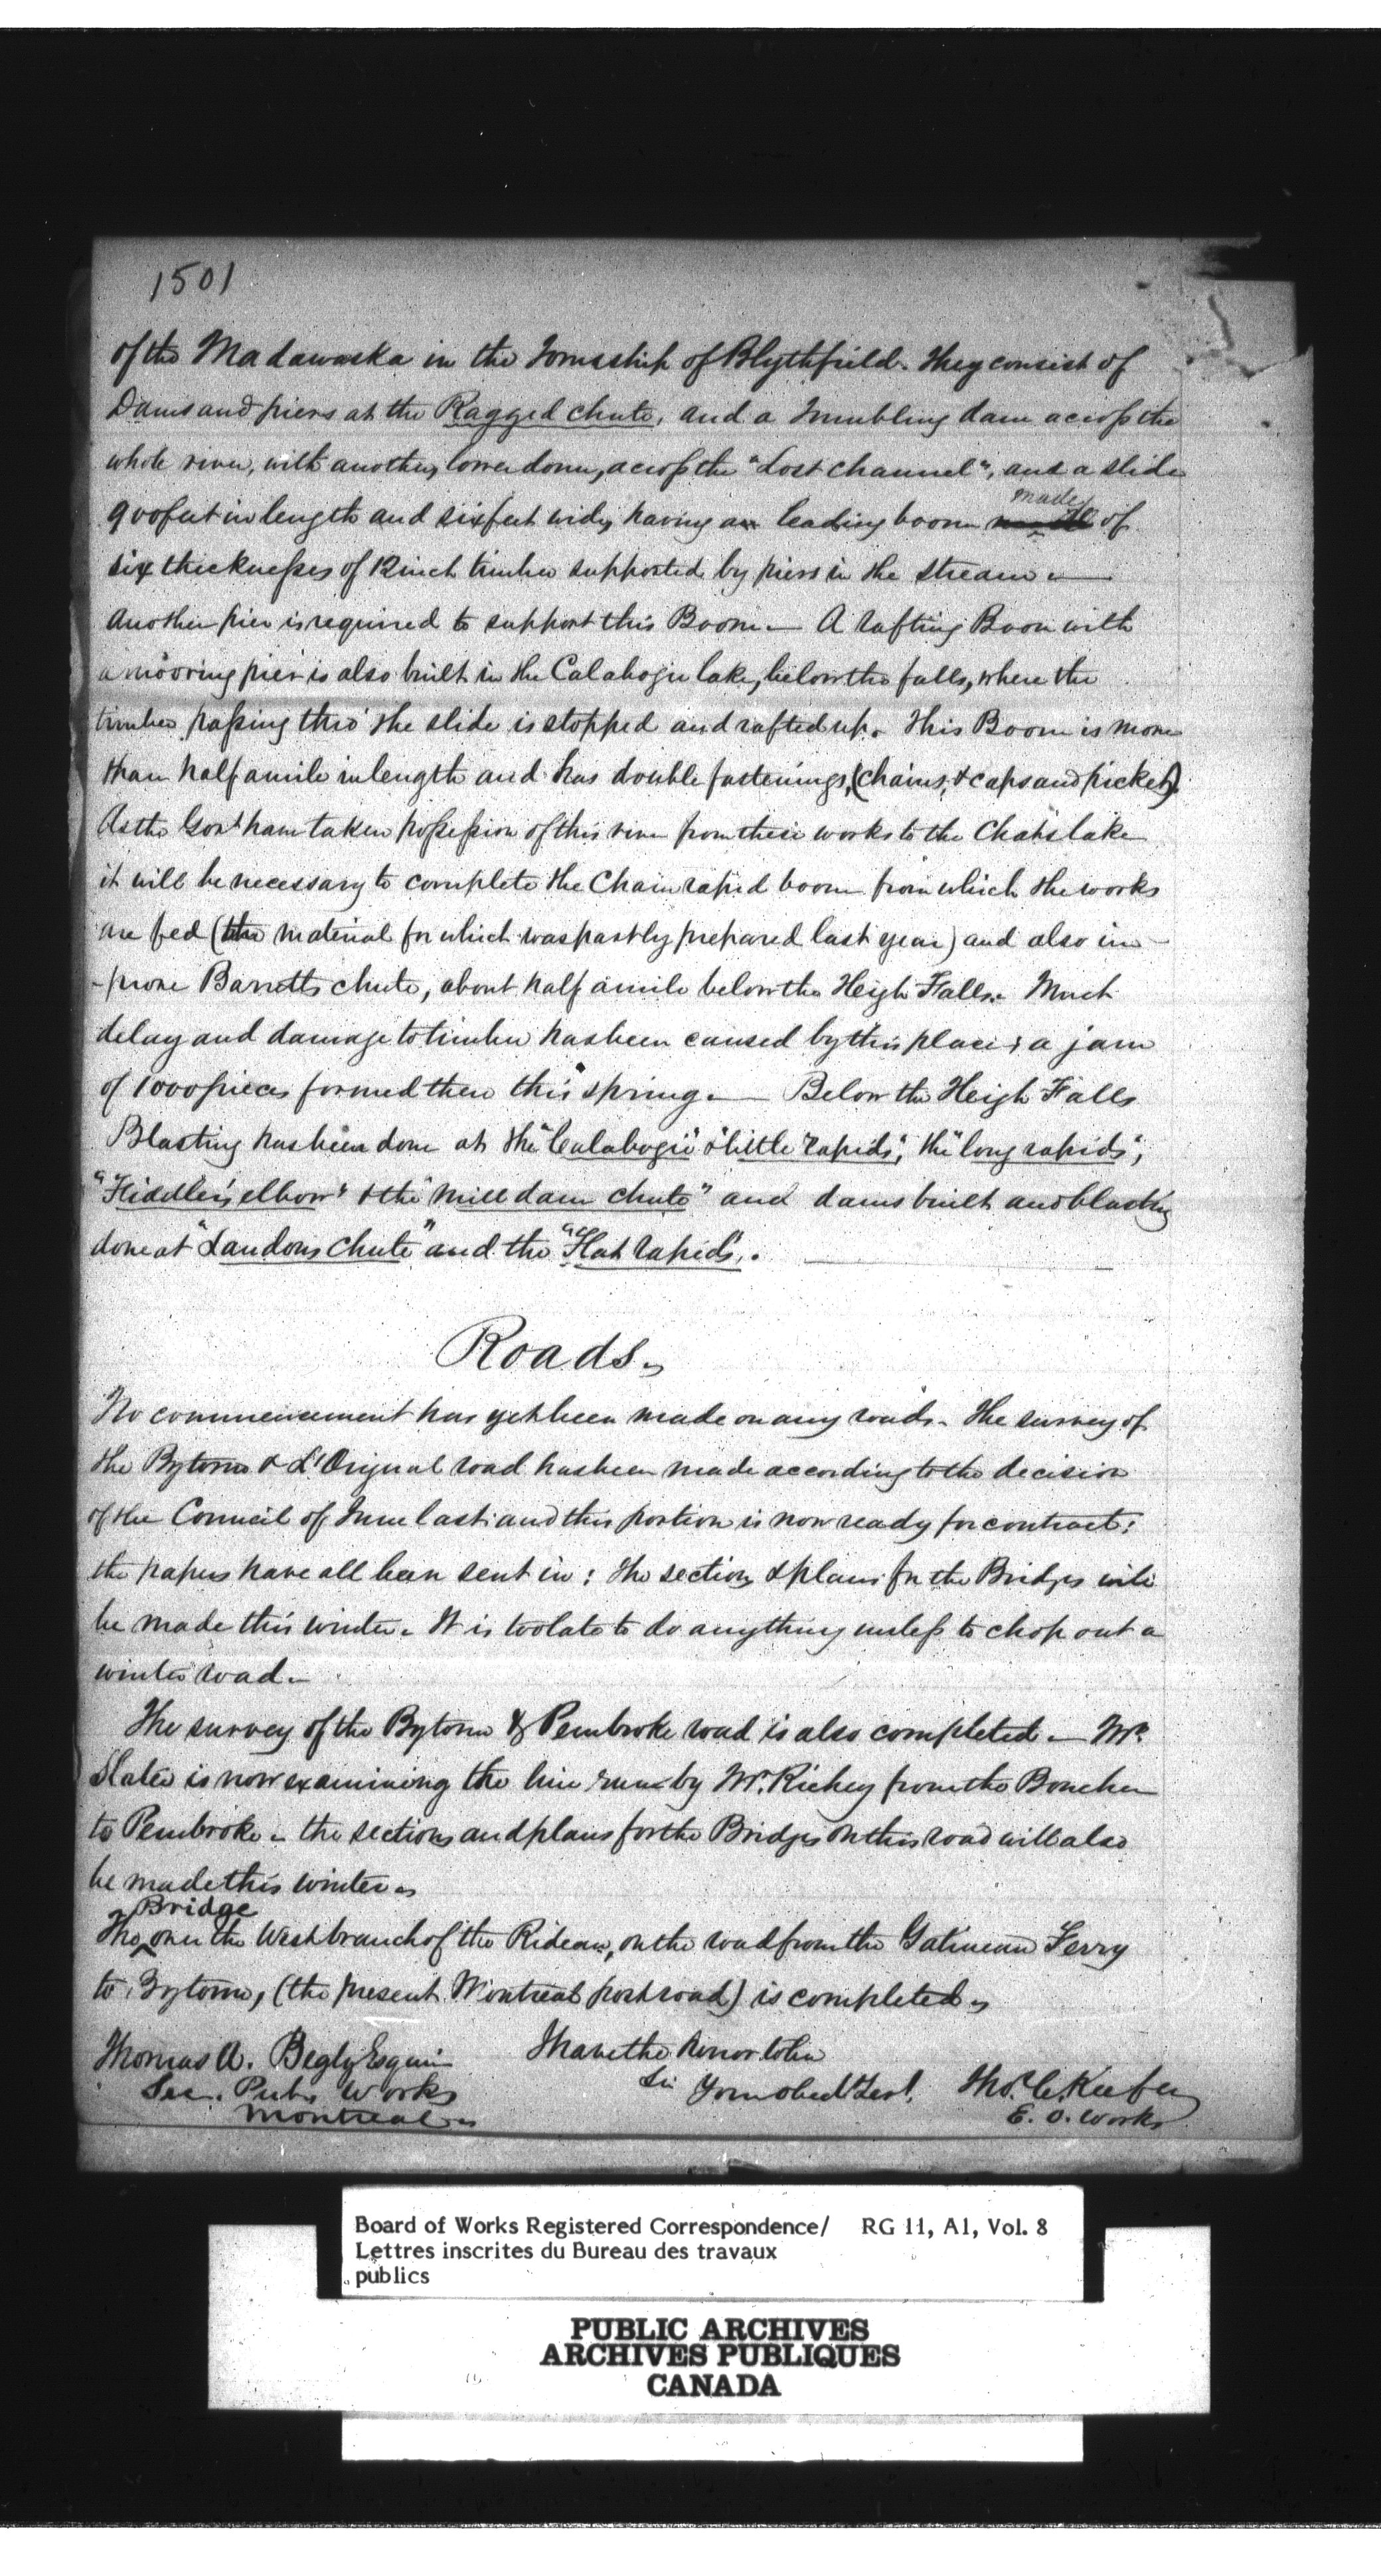 1501
of the Madawaska in the Township of Blythfield. They consist of
Dams and piers at the Ragged chute, and a Tumbling dam across the
whole river, with another, lower down, across the "Lost channel", and a slide
900 feet in length and six feet wide, having a leading boom made of
six thicknesses of 12 inch timber supported by piers in the stream —
Another pier is required to support this Boom — A rafting Boom with
a mooring pier is also built in the Calabogie lake, below the falls, where the
timber passing thro' the slide is stopped and rafted up. This Boom is more
than half a mile in length and has double fastenings, (chains, & caps and picket).
As the Govt have taken possession of this river from these works to the Chats lake
it will be necessary to complete the Chain rapid boom from which the works
are fed (the material for which was partly prepared last year) and also im-
-prove Barretts chute, about half a mile below the Heigh Falls. Much
delay and damage to timber has been caused by this place; a jam
of 1000 pieces formed there this spring. — Below the Heigh Falls
Blasting has been done at the "Calabogie" & "little rapids"; the "long rapids";
"Fiddler's elbow" & the "mill dam chute" and dams built and blasting
done at "Landons chute" and the "Flat rapids".
Roads.
No commencement has yet been made on any roads. The survey of
the Bytown & L'Orignal road has been made according to the decision
of the Council of June last and this portion is now ready for contract:
the papers have all been sent in: the sections & plans for the Bridges will
be made this winter. It is too late to do anything unless to chop out a
winter road.
The survey of the Bytown & Pembroke road is also completed — Mr.
Slater is now examining the line run by Mr. Richey from the Bonchere
to Pembroke. the sections and plans for the Bridges on this road will also
be made this winter.
Bridge
The over the West branch of the Rideau, on the road from the Gatineau Ferry
to Bytown, (the present Montreal post road) is completed.
Thomas A. Begly Esquire
I have the honor to be
Sec. Pub. Works
Sir
Your obedt Servt.
Thos. C. Keefer
Montreal
E. O. Works
Board of Works Registered Correspondence/ RG 11, A1, Vol. 8
Lettres inscrites du Bureau des travaux
publics
PUBLIC ARCHIVES
ARCHIVES PUBLIQUES
CANADA